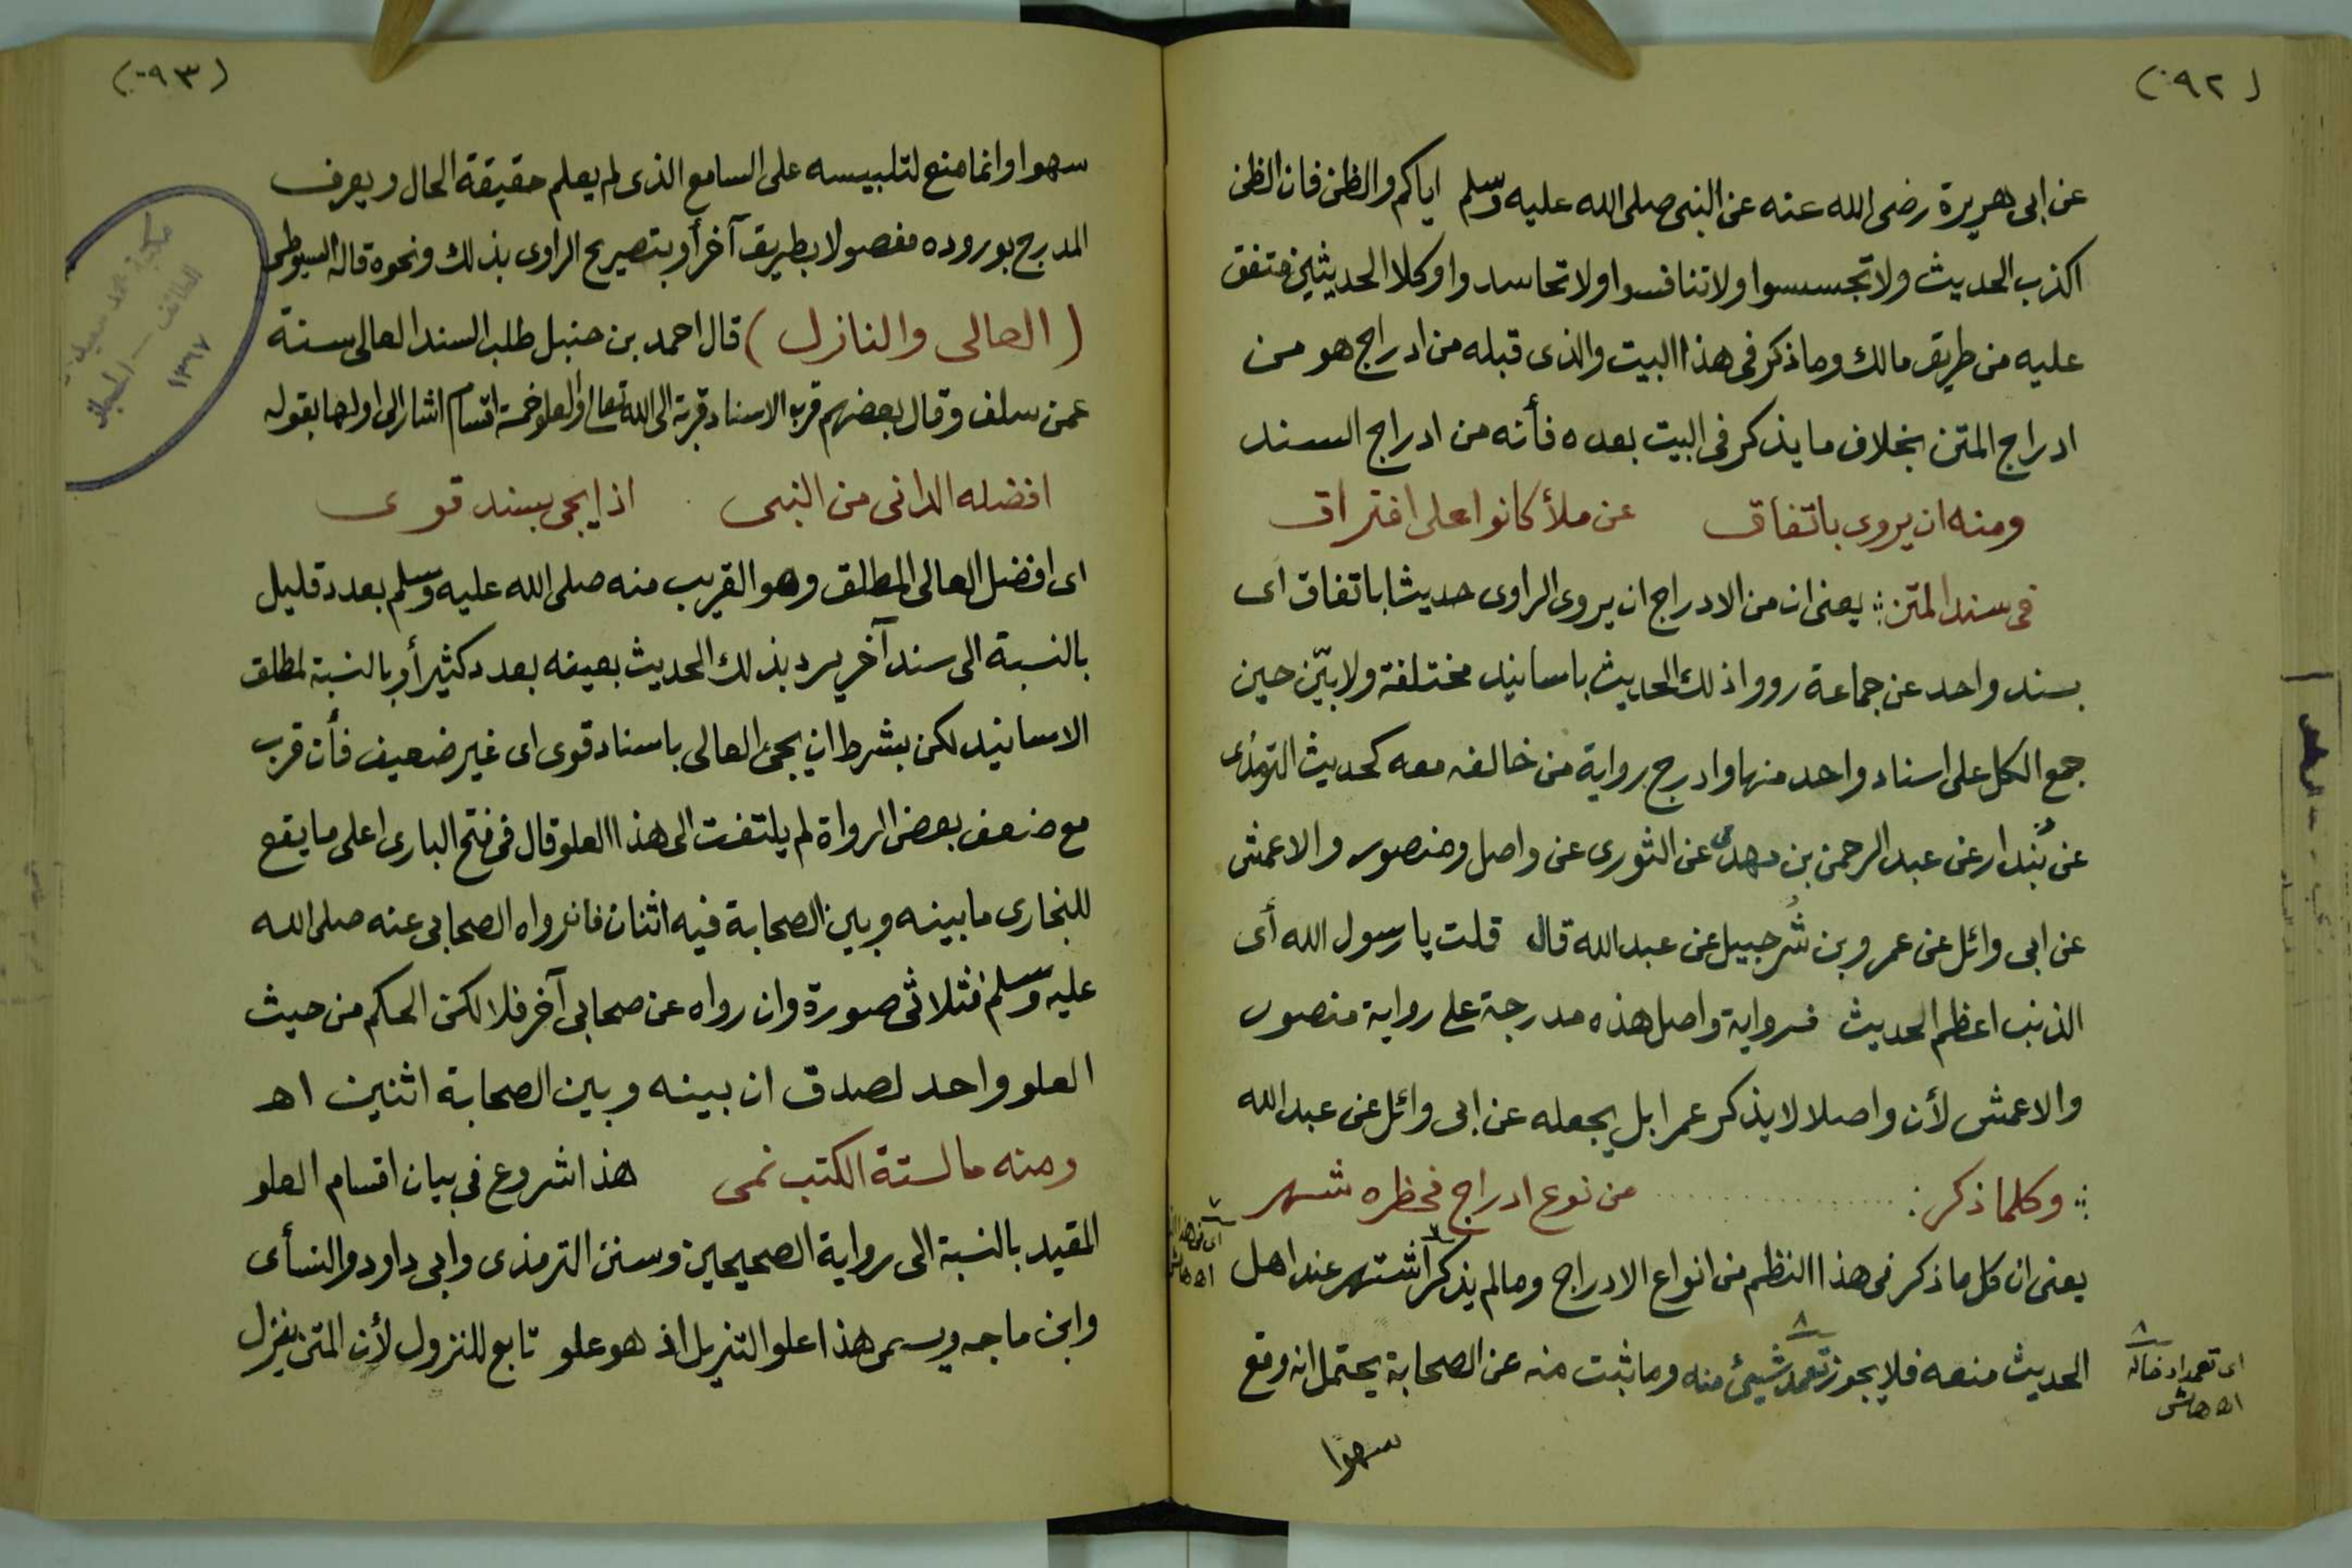 (٠٩٢)
عن ابى هريرة رضى الله عنه عن النبى صلى الله عليه وسلم اياكم والظن فان الظن
اكذب الحديث ولا تجسسوا ولا تنافسوا ولا تحاسدوا وكلا الحديثين متفق
عليه من طريق مالك وما ذكر فى هذا البيت والذى قبله من ادراج هو من
ادراج المتن بخلاف ما يذكر فى البيت بعده فأنه من ادراج السند
ومنه ان يروى باتفاق عن ملأ كانوا على افتراق
فى سند المتن : يعنى ان من الادراج ان يروى الراوى حديثا باتفاق اى
بسند واحد عن جماعة رووا ذلك الحديث باسانيد مختلفة ولا بيّن حين
جمع الكل على اسناد واحد منها وادرج رواية من خالفه معه كحديث الترمذى
عن بُندار عن عبد الرحمن بن مهدى عن الثورى عن واصل ومنصور والاعمش
عن ابى وائل عن عمرو بن شُرحبيل عن عبد الله قال قلت يا رسول الله أى
الذنب اعظم الحديث فرواية واصل هذه مدرجة على رواية منصور
والاعمش لأن واصلا لا يذكر عمرا بل يجعله عن ابى وائل عن عبد الله
: وكلما ذكر : من نوع ادراج فحظره شهر
يعنى ان كل ما ذكر فى هذا النظم من انواع الادراج وما لم يذكر اشتهر عند اهل
الحديث منعه فلا يجوز تعمد شيئ منه وما ثبت منه عن الصحابة يحتمل انه وقع
سهوا
٨
اى تعمد ادخاله
اه هامش
(٠٩٣)
سهوا وانما منع لتلبيسه على السامع الذى لم يعلم حقيقة الحال ويعرف
المدرج بوروده مفصولا بطريق آخر أو بتصريح الراوى بذلك ونحوه قاله السيوطى
(العالى والنازل) قال احمد بن حنبل طلب السند العالى سنة
عمن سلف وقال بعضهم قرب الاسناد قربة الى الله تعالى والعلو خمسة اقسام اشار الى اولها بقوله
افضله الدانى من النبى اذا يجى بسند قوى
اى افضل العالى المطلق وهو القريب منه صلى الله عليه وسلم بعدد قليل
بالنسبة الى سند آخر يرد بذلك الحديث بعينه بعدد كثير أو بالنسبة لمطلق
الاسانيد لكن بشرط ان يجئ العالى باسناد قوى اى غير ضعيف فأن قرب
مع ضعف بعض الرواة لم يلتفت الى هذا العلو قال فى فتح البارى اعلى ما يقع
للبخارى ما بينه وبين الصحابة فيه اثنان فان رواه الصحابى عنه صلى الله
عليه وسلم فثلاثى صورة وان رواه عن صحابى آخر فلا لكن الحكم من حيث
العلو واحد لصدق ان بينه وبين الصحابة اثنين اهـ
ومنه ما لستة الكتب نمى هذا شروع فى بيان اقسام العلو
المقيد بالنسبة الى رواية الصحيحين وسنن الترمذى وابى داود والنسأى
وابن ماجه ويسمى هذا علو التنزيل اذ هو علو تابع للنزول لأن المتن ينزل
الطائف - الحجاز
١٣٦٧